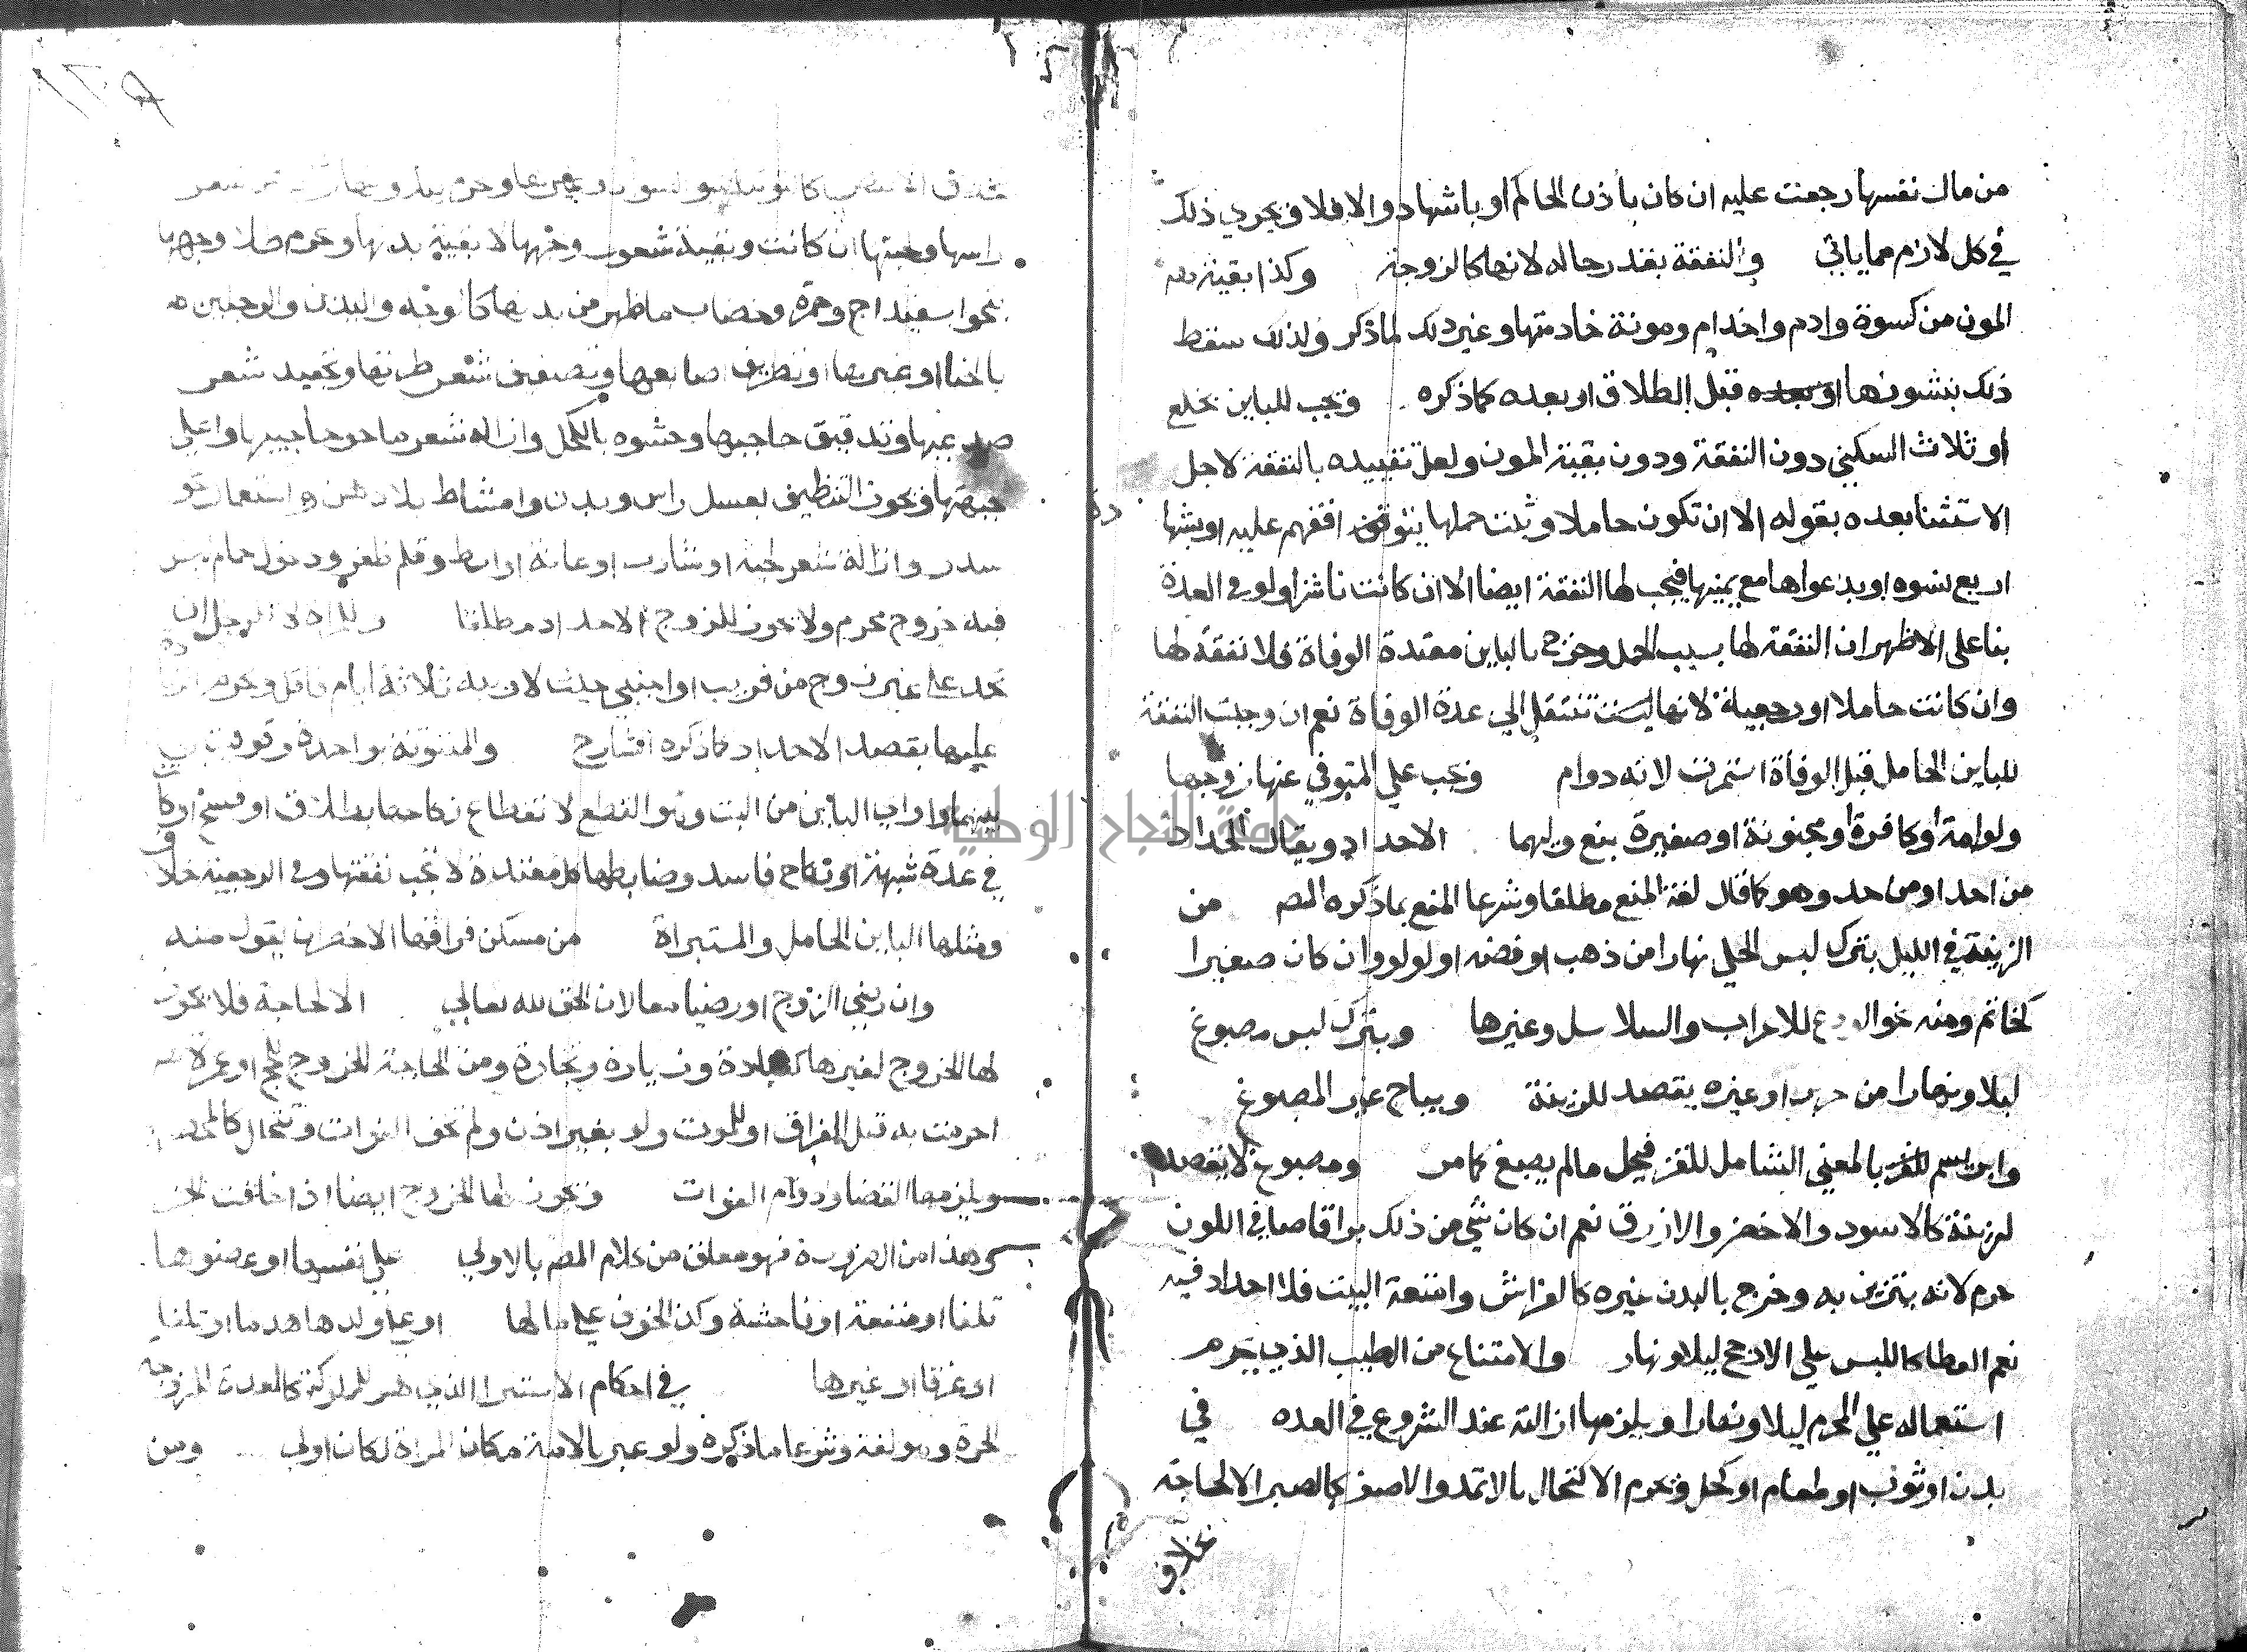 من مال نفسها رجعت عليه ان كان باذن الحاكم او باشهاد والا فلا ويجري ذلك
في كل لازم مما ياتي والنفقة بقدر حاله لانها كالزوجة وكذا بقية
المون من كسوة وادم واخدام ومونة خادمتها وغير ذلك لما ذكر ولذلك سقط
ذلك بنشوزها قبل الطلاق او بعده كما ذكره ويجب للباين بخلع
او ثلاث السكني دون النفقة ودون بقية المون ولعل تقييده بالنفقة لاجل
الاستثنا بعده بقوله الا ان تكون حاملا وثبت حملها بتوافق عليه او بشها
اربع نسوه او بدعواها مع يمينها فيجب لها النفقة ايضا الا ان كانت ناشزا ولو في العدة
بنا علي الاظهر ان النفقة لها بسبب الحمل وخرج بالباين معتدة الوفاة فلا نفقة لها
وان كانت حاملا او رجعية لانها ليست تنتقل الي عدة الوفاة نعم ان وجبت النفقة
للباين الحامل قبل الوفاة استمرت لانه دوام ويجب علي المتوفي عنها زوجها
ولو امة او كافرة او مجنونة او صغيرة بمنع وليهما الاحداد ويقال الحداد
من احد او من حد وهو كما قال لغة المنع مطلقا وشرعا المنع بما ذكره المص من
الزينة في الليل بترك لبس الحلي نهارا من ذهب او فضه او لولو وان كان صغيرا
كخاتم ومنه للاعراب والسلاسل وغيرها وبترك لبس مصبوغ
ليلا ونهارا من حرير او غيره يقصد للزينة ويباح غير المصبوغ
وابريسم بالمعني الشامل للقز فيحل ما لم يصبغ كما مر ومصبوغ لا يقصد
لزينة كالاسود والاخضر والازرق نعم ان كان شي من ذلك براقا صافي اللون
حرم لانه يتزين به وخرج بالبدن غيره كالفراش وامتعة البيت فلا احداد فيه
نعم الغطا كاللبس علي الارجح ليلا ونهار والامتناع من الطيب الذي يحرم
استعماله علي المحرم ليلا ونهارا ويلزمها ازالته عند الشروع في العده في
بدن او ثوب او طعام او كحل ويحرم الاكتحال بالاثمد والاصفر كالصبر الا لحاجة
بخلاف
راسها ولحيتها ان كانت وبقية شعور وجهها لا بقية بدنها ويحرم طلا وجهها
بنحو اسفيداج وحمرة وخضاب ما ظهر من بدنها كالوجه واليدين والرجلين
بالحنا او غيرها وتطريف اصابعها وتصفيف شعر طرتها وتجعيد شعر
صدغيها وتدقيق حاجبها وحشوه بالكحل وازاله شعر ما حو حاجبيها واعلي
جبهتها ويجوز التنظيف بغسل راس وبدن وامتشاط بلا دهن واستعمال نحو
سدر وازالة شعر لحية او شارب او عانة او ابط وقلم ظفر ودخول حمام ليس
فيه خروج محرم ولا يجوز للزوج الاحداد مطلقا وللمراة لا الرجل ان
تحد علي غير زوج من قريب او اجنبي حيث لا ريبه ثلاثة ايام فاقل ويحرم
عليها بقصد الاحداد كما ذكره الشارح والمبتوتة بواحدة
الباين من البت وهو القطع لانقطاع نكاحها بطلاق او فسخ او
في عدة شبهة او نكاح فاسد وضابطها كل معتدة لا تجب نفقتها وفي الرجعية خلاف
ومثلها الباين الحامل والمستبراة من مسكن فراقها الاخصر ان يقول منه
وان رضي الزوج او رضيا معا لان الحق لله تعالي الا لحاجة فلا يجوز
لها الخروج لغيرها وزيارة وتجارة ومن الحاجة الخروج لحج او عمرة
احرمت به قبل الفراق او للموت ولو بغير اذن ولم تخف الفوات
ويلزمها القضا ودوام الفوات ويجوز لها الخروج ايضا اذا خافت
وهذا من الضرورة فهو معلوم من كلام المص بالاولي علي نفسها او عضوها
تلفا او منفعة او فاحشة وكذا الخوف علي مالها او علي ولدها هدما او تلفا
او غرقا او غيرها في احكام الاستبرا الذي هو للمملوكة كالعدة للزوجة
الحرة وهو لغة وشرعا ما ذكره ولو عبر بالامة مكان المراة لكان اولي ومن
جامعة النجاح الوطنية